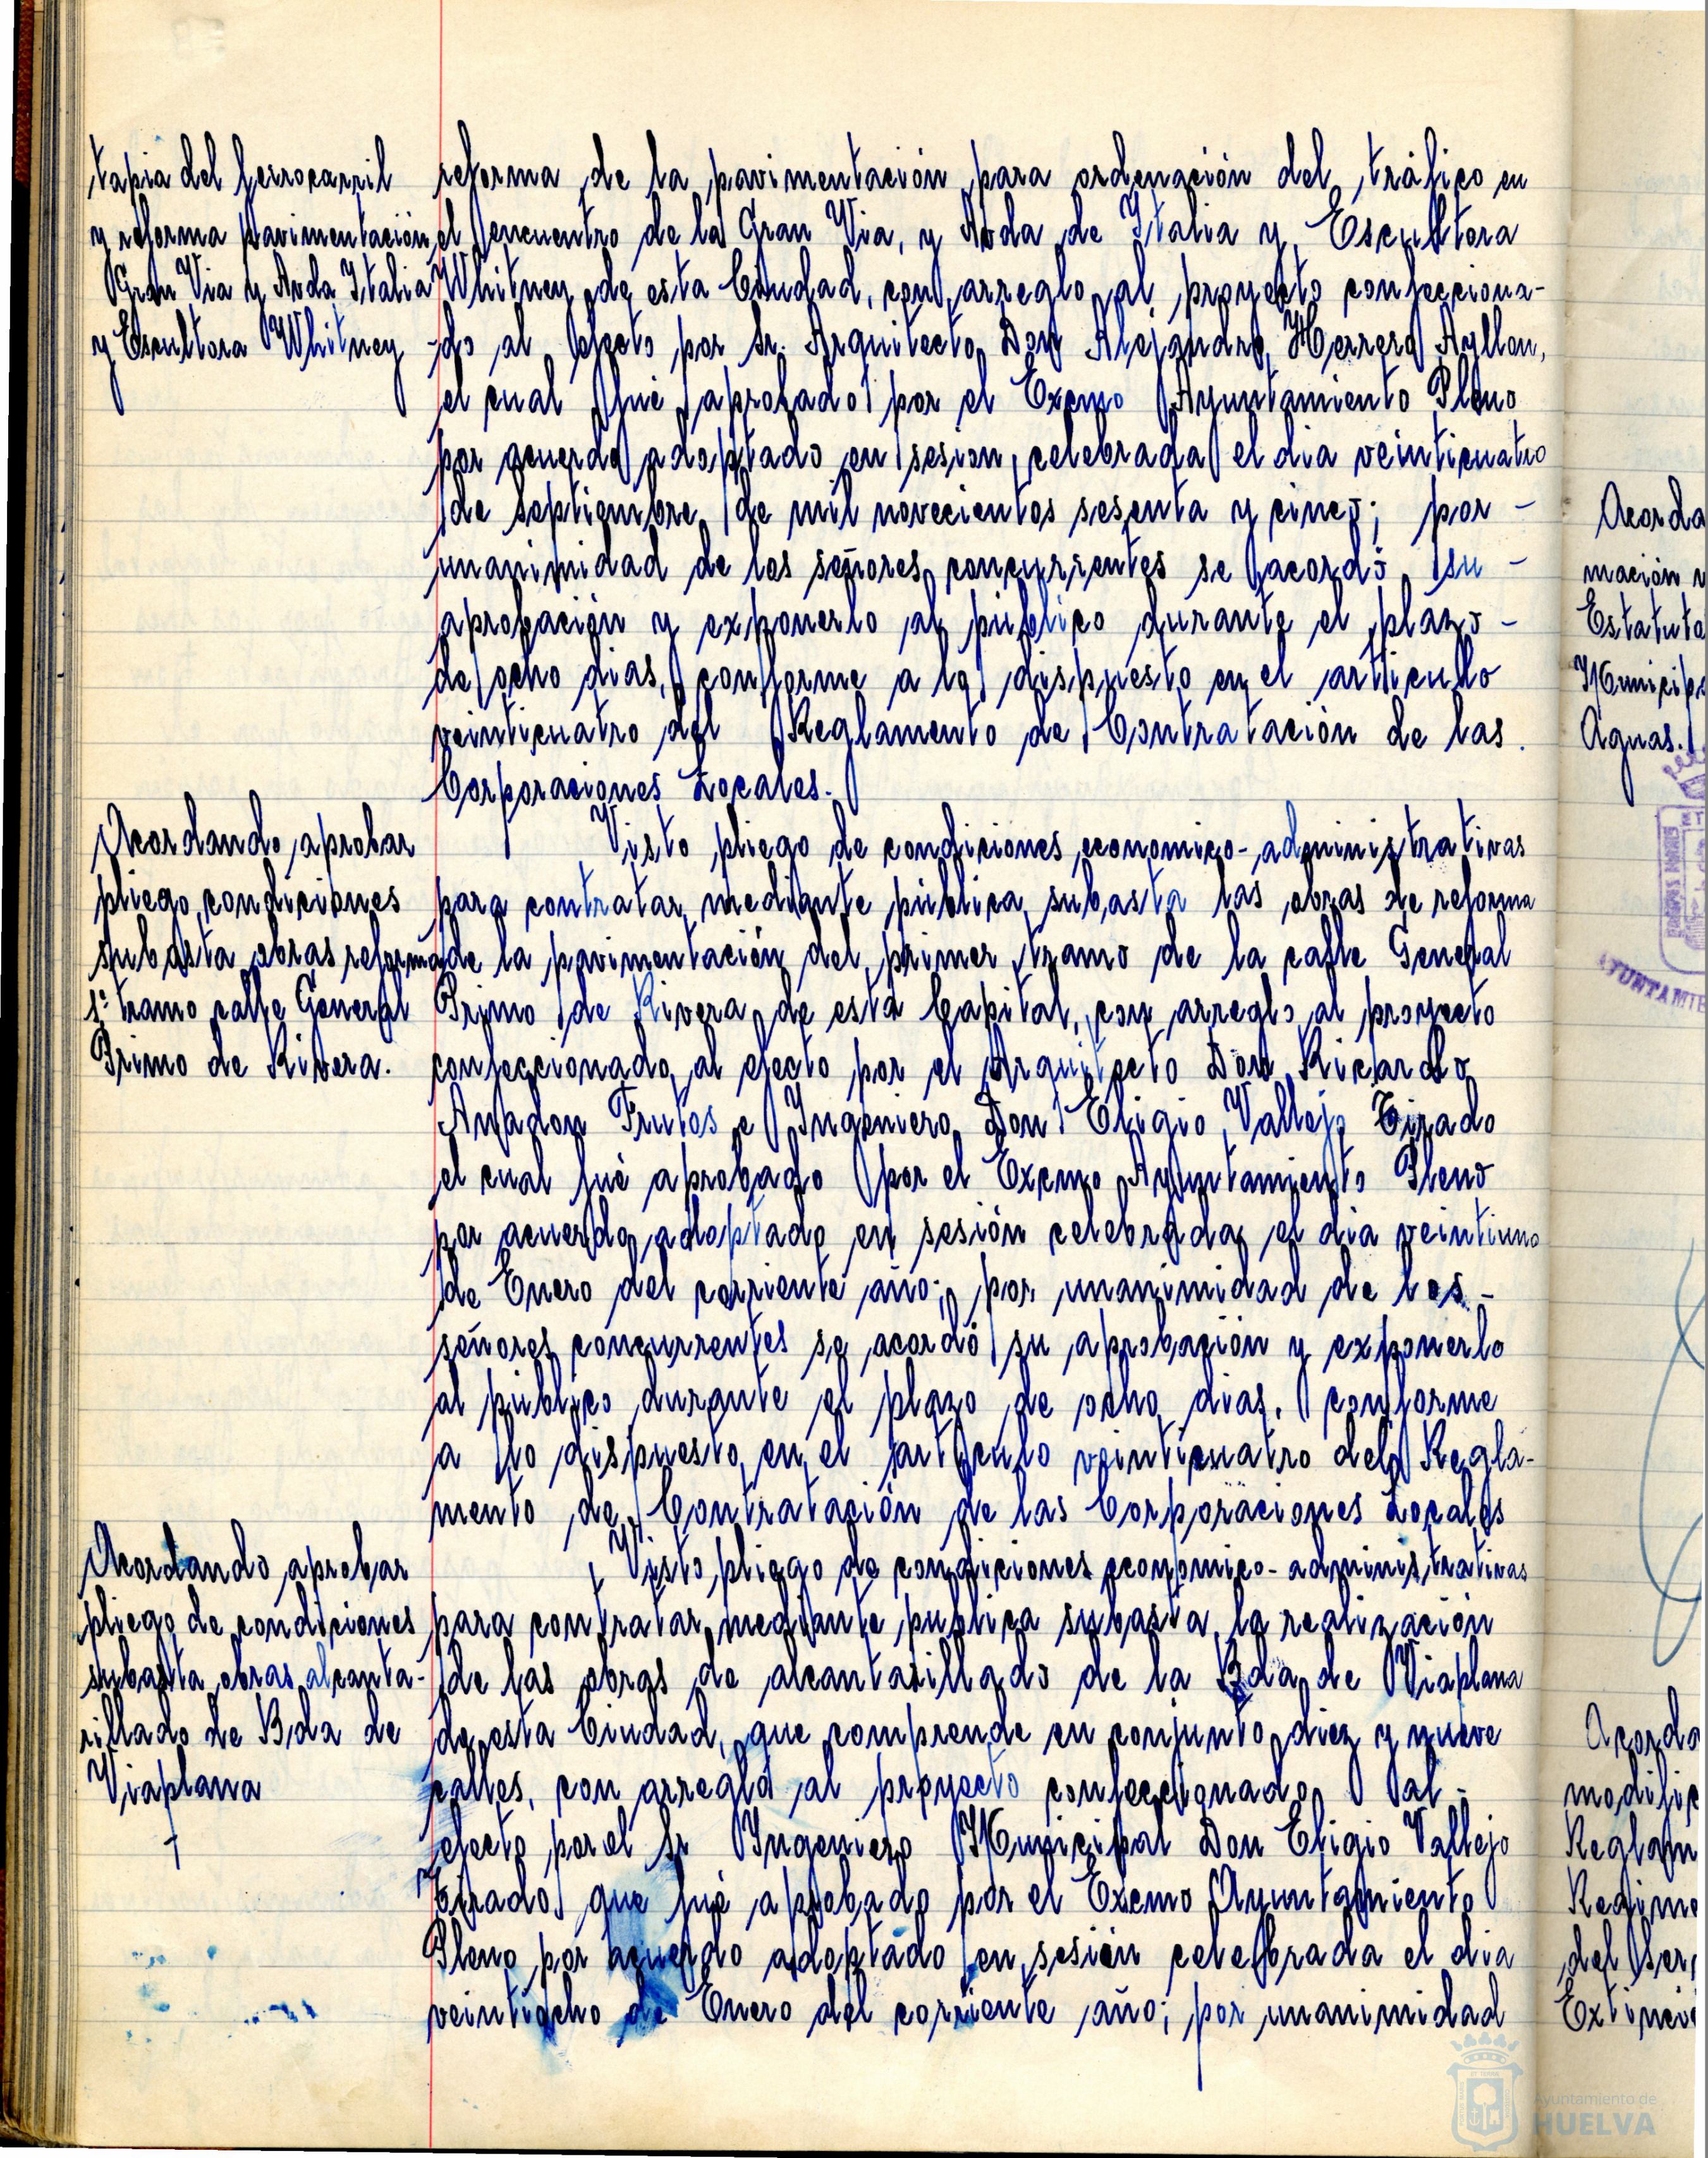 tapia del ferrocarril
y reforma pavimentación
Gran Via y Avda Italia
y Escultora Whitney
reforma de la pavimentación para ordenación del tráfico en
el encuentro de la Gran Via, y Avda de Italia y Escultora
Whitney de esta Ciudad, con arreglo al proyecto confecciona-
do al efecto por Sr. Arquitecto Don Alejandro Herrero Ayllon,
el cual fué aprobado por el Excmo Ayuntamiento Pleno
por acuerdo adoptado en sesion celebrada el dia veinticuatro
de Septiembre de mil novecientos sesenta y cinco; por -
unanimidad de los señores concurrentes se acordó su -
aprobación y exponerlo al público durante el plazo -
de ocho dias, conforme a lo dispuesto en el articulo
veinticuatro del Reglamento de Contratación de las
Corporaciones Locales.
Acordando aprobar
pliego condiciones
subasta obras reforma
1º tramo calle General
Primo de Rivera.
Visto pliego de condiciones economico-administrativas
para contratar mediante pública subasta las obras de reforma
de la pavimentación del primer tramo de la calle General
Primo de Rivera de esta Capital, con arreglo al proyecto
confeccionado al efecto por el Arquitecto Don Ricardo
Anadon Frutos e Ingeniero Don Eligio Vallejo Tirado
el cual fué aprobado por el Excmo Ayuntamiento Pleno
por acuerdo adoptado en sesión celebrada el dia veintiuno
de Enero del corriente año; por unanimidad de los -
señores concurrentes se acordó su aprobación y exponerlo
al público durante el plazo de ocho dias, conforme
a lo dispuesto en el articulo veinticuatro del Regla-
mento de Contratación de las Corporaciones Locales
Acordando aprobar
pliego de condiciones
subasta obras alcanta-
rillado de Bda de
Viaplana
Visto pliego de condiciones economico-administrativas
para contratar mediante publica subasta la realización
de las obras de alcantarillado de la Bda de Viaplana
de esta Ciudad, que comprende en conjunto diez y nueve
calles, con arreglo al proyecto confeccionado al -
efecto por el Sr Ingeniero Municipal Don Eligio Vallejo
Tirado que fué aprobado por el Excmo Ayuntamiento
Pleno por acuerdo adoptado en sesión celebrada el dia
veintiocho de Enero del corriente año; por unanimidad
Acorda
mación y
Estatuto
Municipa
Aguas.
AYUNTAMIE
Acorda
modific
Reglam
Regime
del Ser
Extinci
Ayuntamiento de
HUELVA